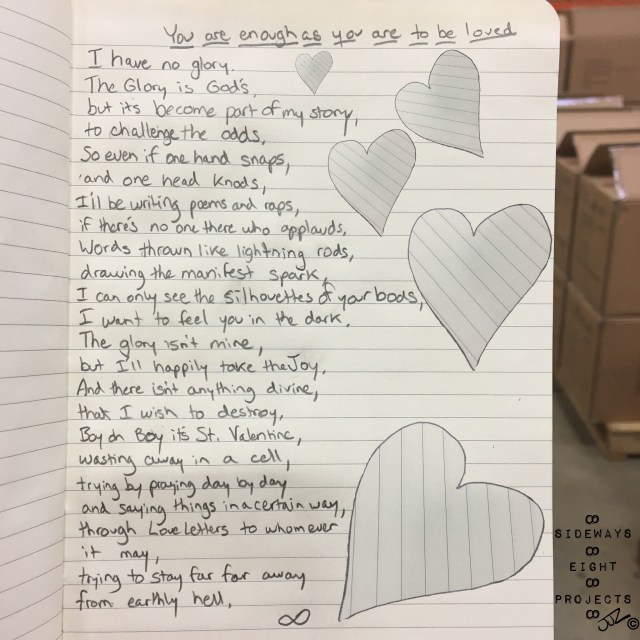 You are enough as you are to be loved
I have no glory.
The Glory is God's,
but it's become part of my story,
to challenge the odds,
So even if one hand snaps,
and one head knods,
I'll be writing poems and raps,
if there's no one there who applauds,
Words thrown like lightning rods,
drawing the manifest spark,
I can only see the silhouettes of your bods,
I want to feel you in the dark.
The glory isn't mine,
but I'll happily take the Joy.
And there isn't anything divine,
that I wish to destroy,
Boy oh Boy it's St. Valentine,
wasting away in a cell,
trying by praying day by day
and saying things in a certain way,
through Love Letters to whomever
it may,
trying to stay far far away
from earthly hell,
∞
8
SIDEWAYS
8
EIGHT
8
PROJECTS
8
©